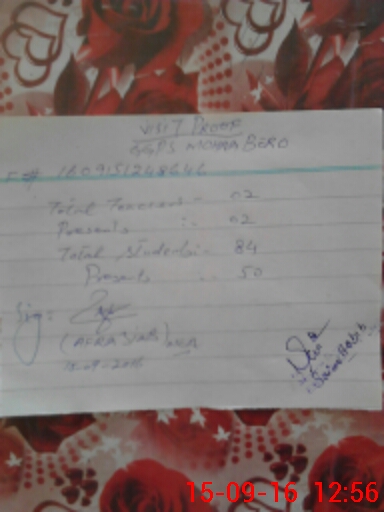 VISIT PROOF
GGPS MOHRA BERO
# 1609151248646
Total Teachers - 02
Presents :- 02
Total Students:- 84
Presents 50
Sig:
(AFRASIAB)
15-09-2016
Saima Habib
15-09-16 12:56